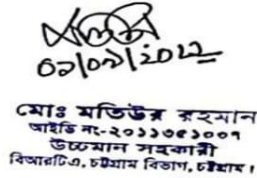 মোঃ মতিউর রহমান
আইডি নং-২০১১৩৫১০০৭
উচ্চমান সহকারী
বিআরটিএ, চট্টগ্রাম বিভাগ, চট্টগ্রাম।